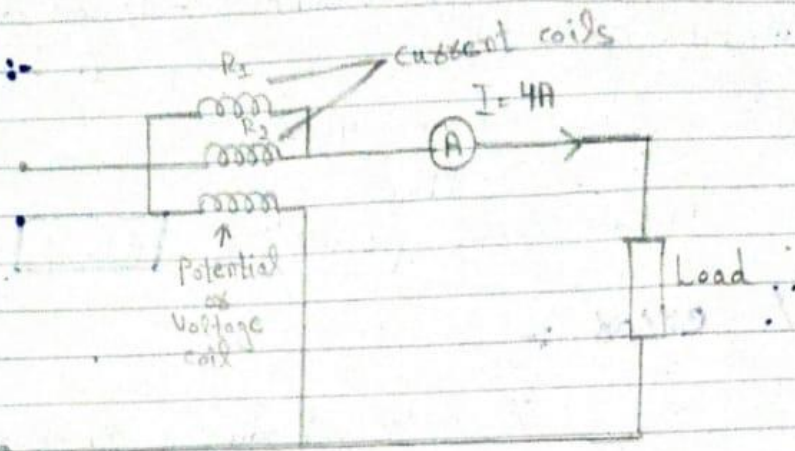 R1
current coils
I = 4A
R2
A
Potential
or
Voltage
coil
Load